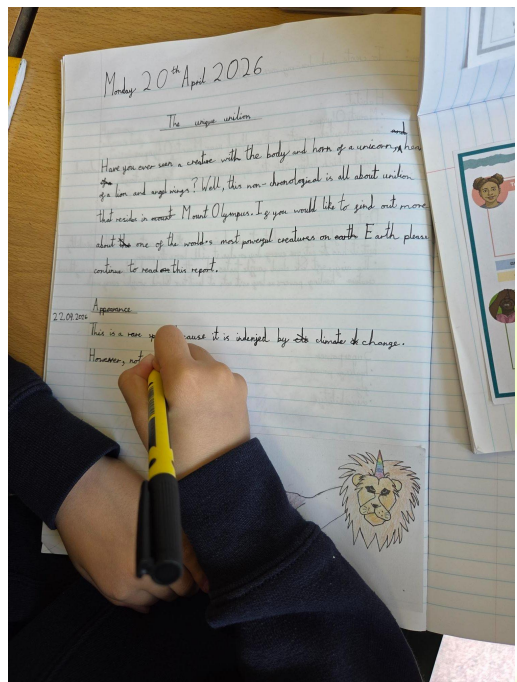 Monday 20th April 2026
The unique unilion
and
Have you ever seen a creature with the body and horn of a unicorn,
the
of a lion and angel wings? Well, this non-chronological is all about unilion
that resides in mount Mount Olympus. If you would like to find out more
about the one of the world's most powerful creatures on earth Earth please
continue to read on this report.
22.04.2026
Appearance
This is a rare because it is indenjed by its climate change.
However, not